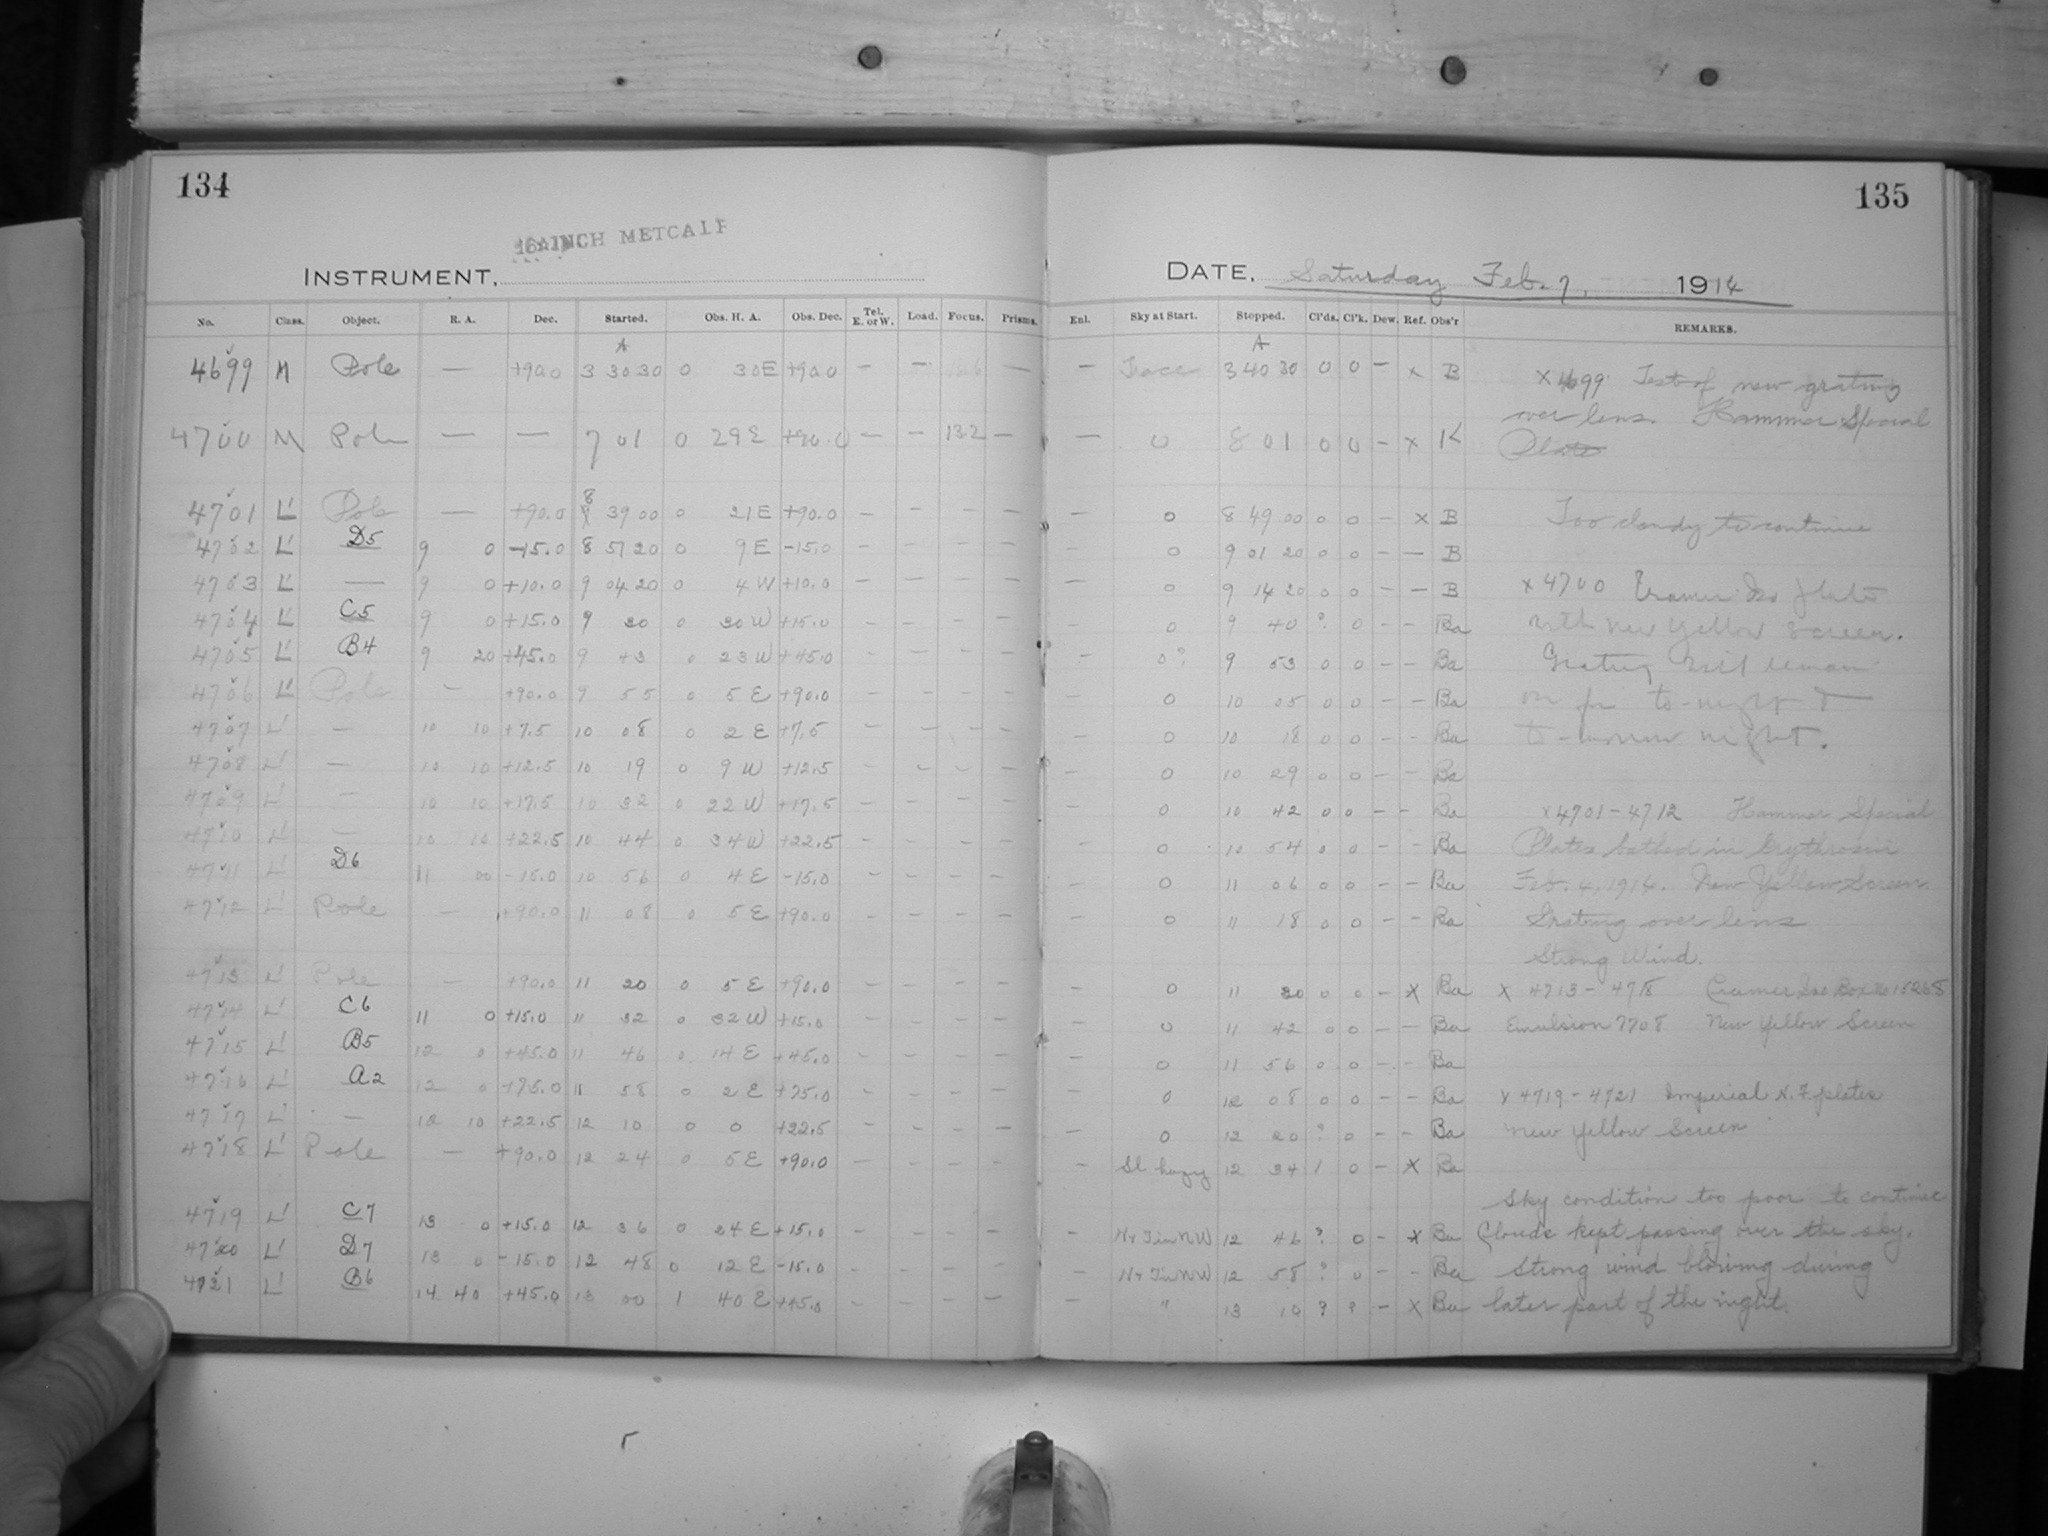 134
135
16 INCH METCALF
INSTRUMENT,
DATE, Saturday Feb. 7, 1914
No. Class. Object. R. A. Dec. Started. Obs. H. A. Obs. Dec. Tel. E. or W. Load. Focus. Prisms.
Enl. Sky at Start. Stopped. Cl'ds. Cl'k. Dew. Ref. Obs'r REMARKS.
A
A
4699 M Pole — +90.0 3 30 30 0 30 E +90.0 — — —
— Trace 3 40 30 0 0 — x B
x 4699 Test of new grating
over lens. Hammer Special
Plates
4700 M Pole — — 7 01 0 29 E +90.0 — — 13.2 —
— 0 8 01 0 0 — x K
4701 L' Pole — +90.0 8 39 00 0 21 E +90.0 — — — —
— 0 8 49 00 0 0 — x B
Too cloudy to continue
4702 L' D5 9 0 -15.0 8 51 20 0 9 E -15.0 — — — —
— 0 9 01 20 0 0 — — B
4703 L' — 9 0 +10.0 9 04 20 0 4 W +10.0 — — — —
— 0 9 14 20 0 0 — — B
x 4700 Cramer Iso plate
with new yellow screen.
Grating will remain
on for to-night &
to-morrow night.
4704 L' C5 9 0 +15.0 9 30 0 30 W +15.0 — — — —
— 0 9 40 ? 0 — — Ba
4705 L' B4 9 20 +45.0 9 43 0 23 W +45.0 — — — —
— 0? 9 53 0 0 — — Ba
4706 L' Pole — +90.0 9 55 0 5 E +90.0 — — — —
— 0 10 05 0 0 — — Ba
4707 L' — 10 10 +7.5 10 08 0 2 E +7.5 — — — —
— 0 10 18 0 0 — — Ba
4708 L' — 10 10 +12.5 10 19 0 9 W +12.5 — — — —
— 0 10 29 0 0 — — Ba
4709 L' — 10 10 +17.5 10 32 0 22 W +17.5 — — — —
— 0 10 42 0 0 — — Ba
x 4701 - 4712 Hammer Special
Plates bathed in Erythrosin
Feb. 4, 1914. New Yellow Screen
Grating over lens
Strong Wind.
4710 L' — 10 10 +22.5 10 44 0 34 W +22.5 — — — —
0 10 54 0 0 — — Ba
4711 L' D6 11 00 -15.0 10 56 0 4 E -15.0 — — — —
— 0 11 06 0 0 — — Ba
4712 L' Pole — +90.0 11 08 0 5 E +90.0 — — — —
— 0 11 18 0 0 — — Ba
4713 L' Pole — +90.0 11 20 0 5 E +90.0 — — — —
— 0 11 30 0 0 — x Ba
x 4713 - 4718 Cramer Iso Box No 15268
Emulsion 7708 New Yellow Screen
4714 L' C6 11 0 +15.0 11 32 0 32 W +15.0 — — — —
— 0 11 42 0 0 — — Ba
4715 L' B5 12 0 +45.0 11 46 0 14 E +45.0 — — — —
— 0 11 56 0 0 — — Ba
4716 L' A2 12 0 +75.0 11 58 0 2 E +75.0 — — — —
— 0 12 08 0 0 — — Ba
x 4719 - 4721 Imperial N. F. plates
new yellow screen
4717 L' — 12 10 +22.5 12 10 0 0 +22.5 — — — —
— 0 12 20 ? 0 — — Ba
4718 L' Pole — +90.0 12 24 0 5 E +90.0 — — — —
— Sl hazy 12 34 1 0 — x Ba
Sky condition too poor to continue
Clouds kept passing over the sky.
Strong wind blowing during
later part of the night.
4719 L' C7 13 0 +15.0 12 36 0 24 E +15.0 — — — —
— 12 46 ? 0 — x Ba
4720 L' D7 13 0 -15.0 12 48 0 12 E -15.0 — — — —
— 12 58 ? 0 — — Ba
4721 L' B6 14 40 +45.0 13 00 1 40 E +45.0 — — — —
— " 13 10 ? ? — x Ba